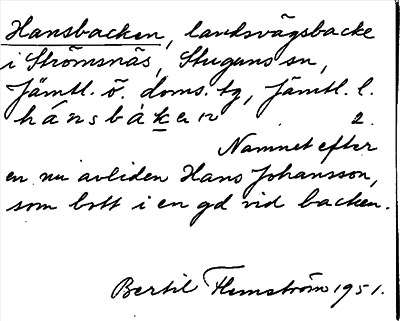 Hansbacken, landsvägsbacke
i Strömsnäs, Stuguns sn,
Jämtl. ö. doms. tg, Jämtl. l.
hánsbàken 2.
Namnet efter
en nu avliden Hans Johansson,
som bott i en gd vid backen.
Bertil Flemström 1951.